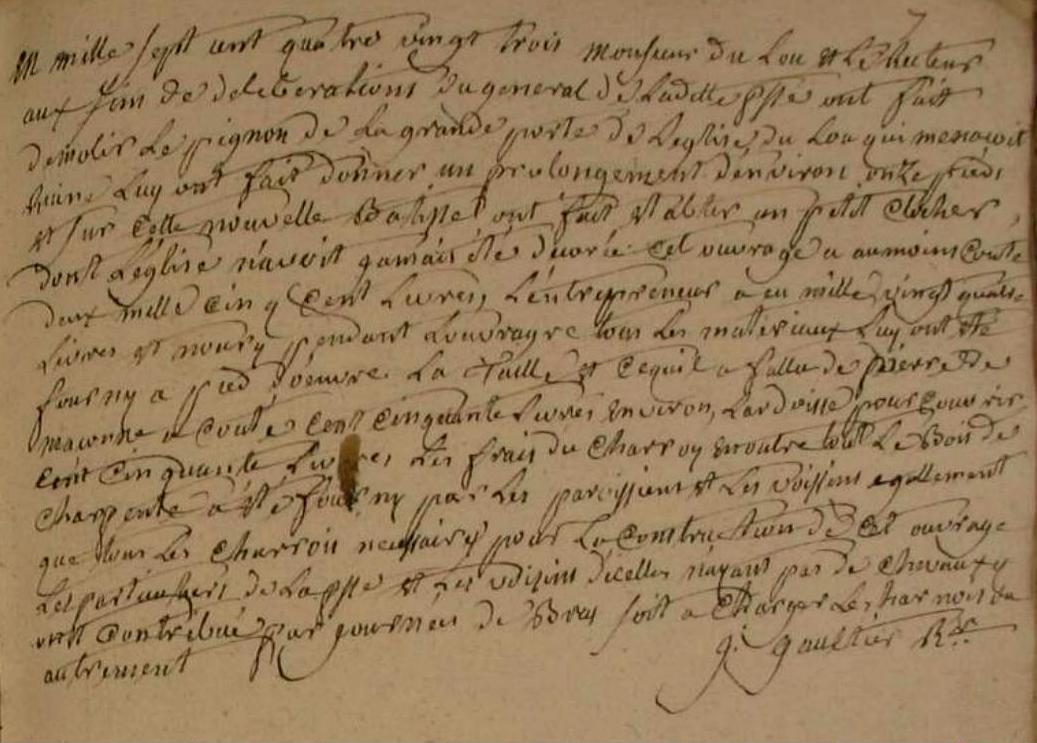 7
En mille sept cent quatre vingt trois monsieur du Lou et Le Recteur
aux fins de deliberations du general de Laditte psse ont fait
demolir Le pignon de La grande porte de Leglise du Lou qui menaçoit
Ruine Luy ont fait donner un prolongement d'environ onze pieds
et sur cette nouvelle Batisse ont fait etablir un petit clocher,
dont L'église n'avoit jamais été décorée cet ouvrage a aumoins couté
deux mille cinq cent Livres, L'entrepreneur a eu mille vingt quatre
Livres et noury pendant L'ouvragre tous Les materiaux Luy ont été
fourny a pied d'oeuvre La Taille et cequil a fallu de pierre de
maconne a couté cent cinquante Livres environ, Lardoisse pour couvrir
cent cinquante Livres, Les frais du charroy en outre tout Le Bois de
charpente a été fourny par Les paroissiens et Les voissins egallement
que tous Les charrois necessairs pour La Construction de cet ouvrage
Les particuliers de La psse et Les voisins d'icelles n'ayant pas de chevaux y
ont contribué par journées de Bras soit a charger Les harnois ou
autrement
g. gaultier Rr.